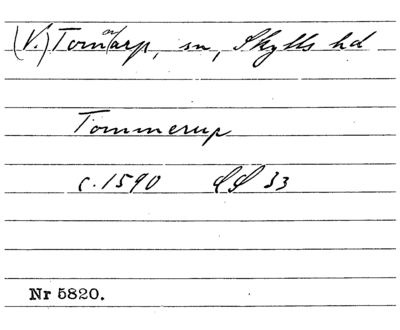 (V.) Tommarp, sn, Skytts hd
Tommerup
c. 1590
33
Nr 5820.